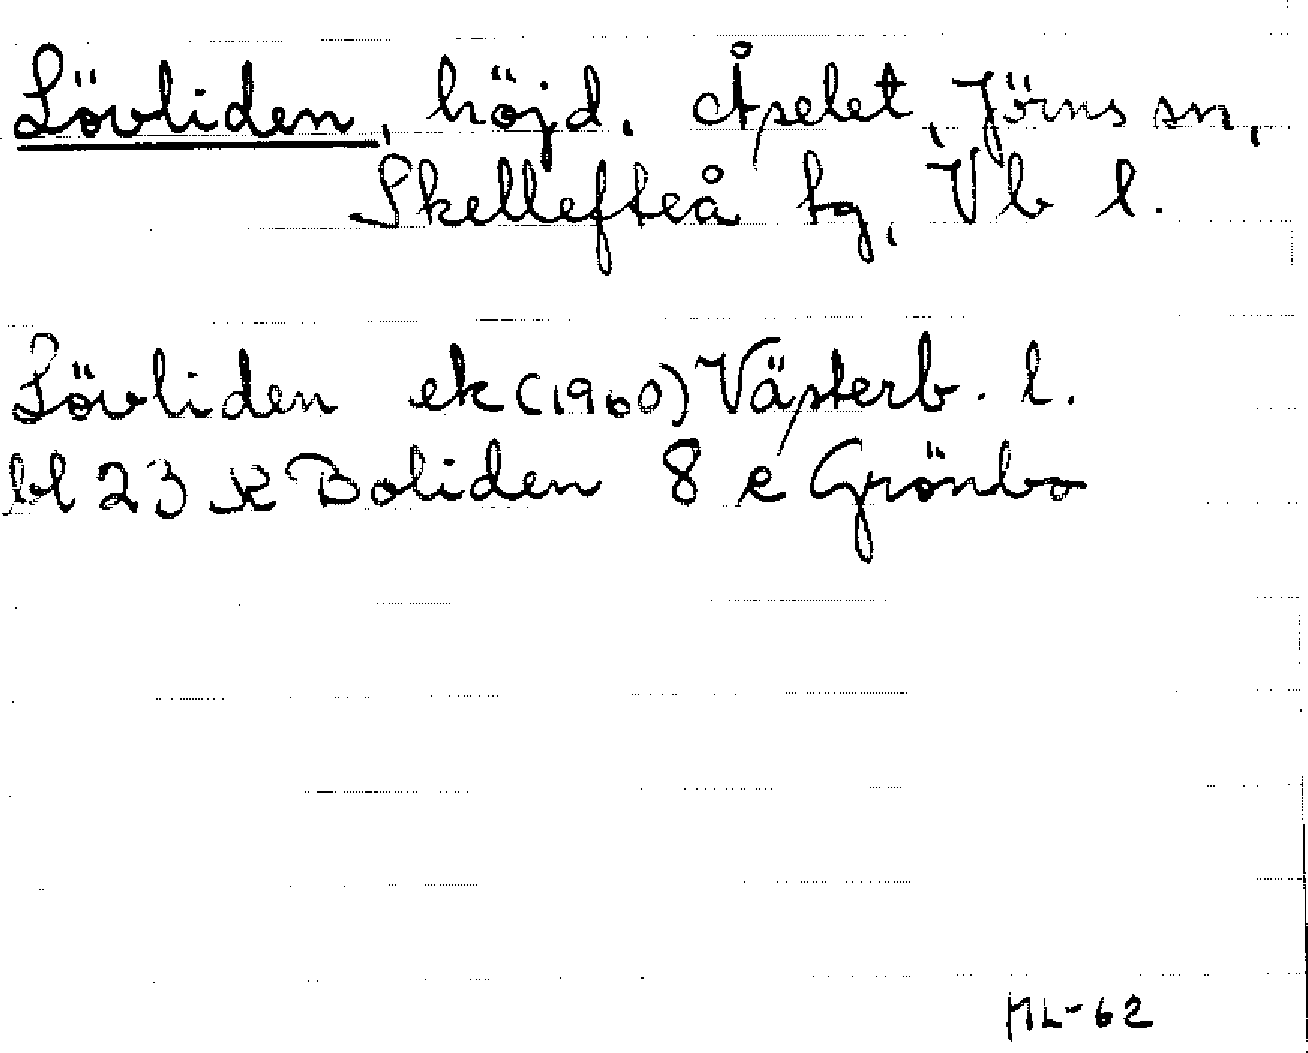 Lövliden, höjd. Åselet, Jörns sn,
Skellefteå tg, Vb l.
Lövliden ek (1960) Västerb. l.
bl 23 K Boliden 8 e Grönbo
ML-62